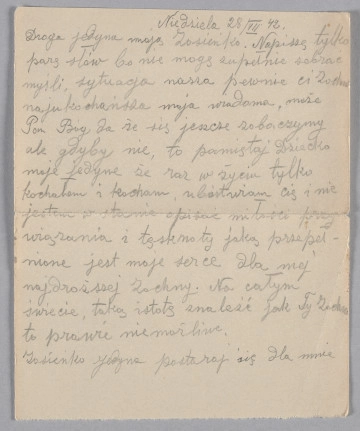 Niedziela 28 III 42.
Droga jedyna moja Zosieńko. Napiszę tylko
parę słów bo nie mogę zupełnie zebrać
myśli, sytuacja nasza pewnie ci Zochna
najukochańsza moja wiadoma, może
Pan Bóg da że się jeszcze zobaczymy
ale gdyby nie, to pamiętaj Dziecko
moje jedyne że raz w życiu tylko
kochałem i kocham, ubóstwiam cię i nie
jestem w stanie opisać miłości przy
wiązania i tęsknoty jaką przepeł-
nione jest moje serce dla mej
najdroższej Zochny. Na całym
świecie, taką istotę znaleźć jak Ty Zochno
to prawie niemożliwe.
Zosieńko jedyna postaraj się dla mnie